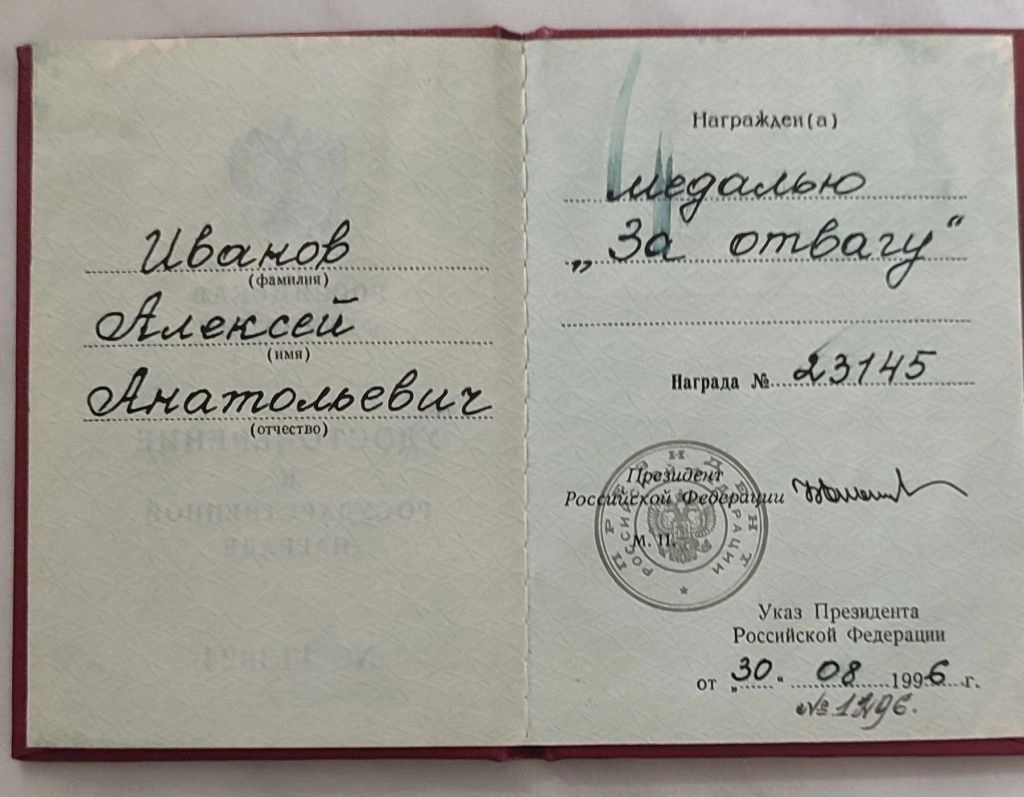 Иванов
(фамилия)
Алексей
(имя)
Анатольевич
(отчество)
Награжден(а)
медалью
„За отвагу“
Награда № 23145
Президент
Российской Федерации
М. П.
ПРЕЗИДЕНТ
РОССИЙСКОЙ ФЕДЕРАЦИИ
Указ Президента
Российской Федерации
от „30“ 08 1996 г.
№ 1296.